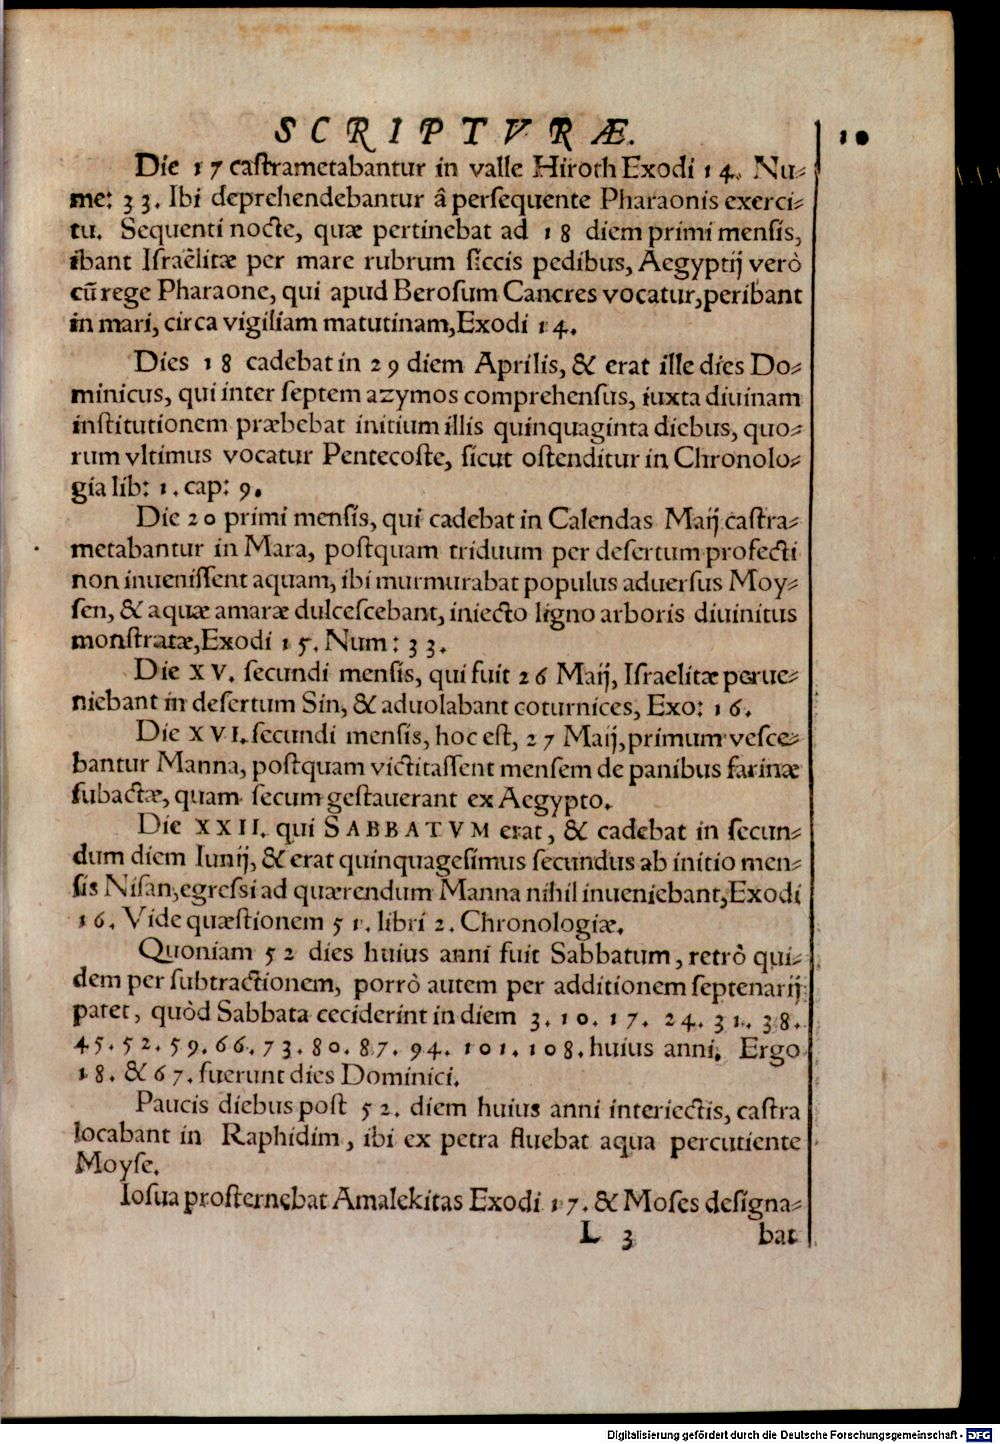 SCRIPTVRÆ. 10
Die 17 castrametabantur in valle Hiroth Exodi 14. Nu⸗
me: 33. Ibi deprehendebantur â persequente Pharaonis exerci⸗
tu. Sequenti nocte, quæ pertinebat ad 18 diem primi mensis,
ibant Israëlitæ per mare rubrum siccis pedibus, Aegyptij verò
cū rege Pharaone, qui apud Berosum Cancres vocatur, peribant
in mari, circa vigiliam matutinam, Exodi 14.
Dies 18 cadebat in 29 diem Aprilis, & erat ille dies Do⸗
minicus, qui inter septem azymos comprehensus, iuxta diuinam
institutionem præbebat initium illis quinquaginta diebus, quo⸗
rum vltimus vocatur Pentecoste, sicut ostenditur in Chronolo⸗
gia lib: 1. cap: 9.
Die 20 primi mensis, qui cadebat in Calendas Maij castra⸗
metabantur in Mara, postquam triduum per desertum profecti
non inuenissent aquam, ibi murmurabat populus aduersus Moy⸗
sen, & aquæ amaræ dulcescebant, iniecto ligno arboris diuinitus
monstratæ, Exodi 15. Num: 33.
Die XV. secundi mensis, qui fuit 26 Maij, Israelitæ perue⸗
niebant in desertum Sin, & aduolabant coturnices, Exo: 16.
Die XVI. secundi mensis, hoc est, 27 Maij, primum vesce⸗
bantur Manna, postquam victitassent mensem de panibus farinæ
subactæ, quam secum gestauerant ex Aegypto.
Die XXII. qui SABBATVM erat, & cadebat in secun⸗
dum diem Iunij, & erat quinquagesimus secundus ab initio men⸗
sis Nisan, egressi ad quærendum Manna nihil inueniebant, Exodi
16. Vide quæstionem 51. libri 2. Chronologiæ.
Quoniam 52 dies huius anni fuit Sabbatum, retrò qui⸗
dem per subtractionem, porrò autem per additionem septenarij
patet, quòd Sabbata ceciderint in diem 3. 10. 17. 24. 31. 38.
45. 52. 59. 66. 73. 80. 87. 94. 101. 108. huius anni. Ergo
18. & 67. fuerunt dies Dominici.
Paucis diebus post 52. diem huius anni interiectis, castra
locabant in Raphidim, ibi ex petra fluebat aqua percutiente
Moyse.
Iosua prosternebat Amalekitas Exodi 17. & Moses designa⸗
L 3 bat
Digitalisierung gefördert durch die Deutsche Forschungsgemeinschaft - DFG